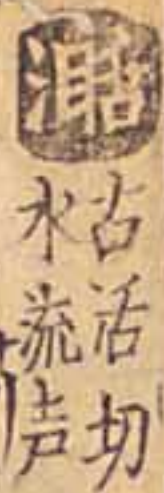 古活切
水流声